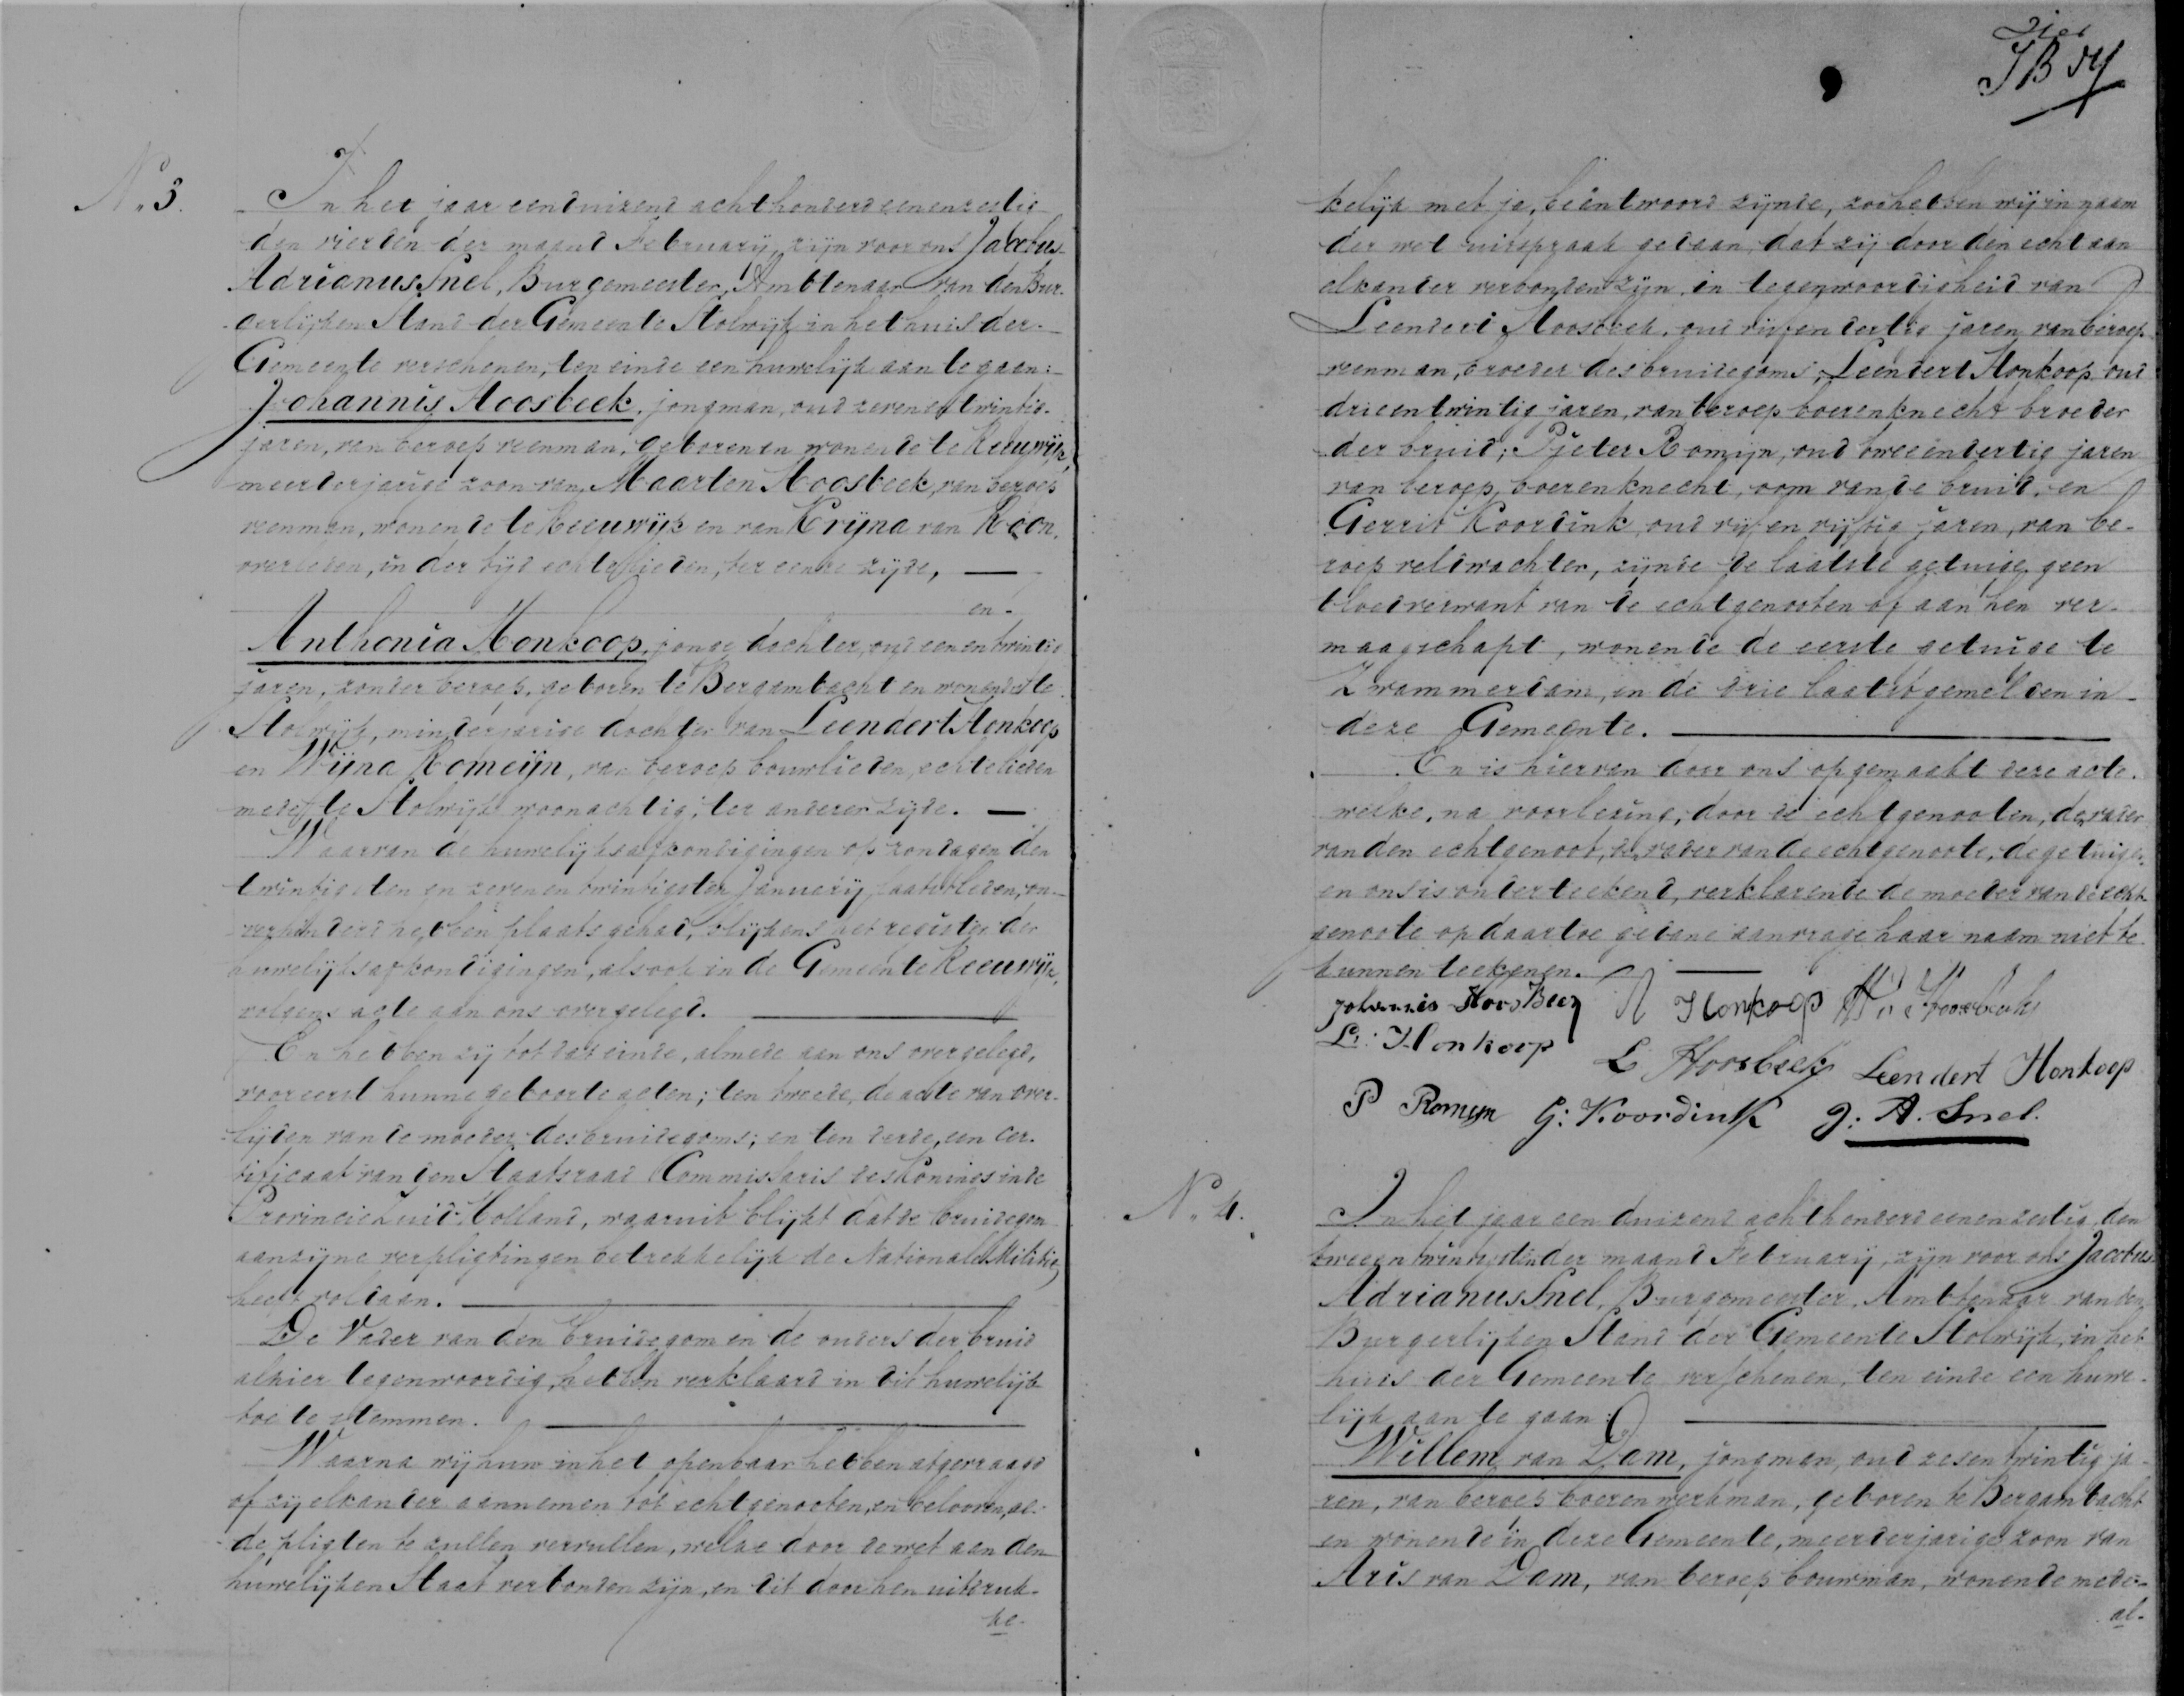 Vier
N.° 3.
In het jaar eenduizend achthonderd eenenzestig
den vierden der maand February, zijn voor ons Jacobus
Adrianus Snel, Burgemeester, Ambtenaar van den Bur-
gerlijken Stand der Gemeente Stolwijk in het huis der
Gemeente verschenen, ten einde een huwelijk aan te gaan:
Johannis Hoosbeek, jongman, oud zevenentwintig
jaren, van beroep veenman, geboren en wonende te Reeuwijk,
meerderjarige zoon van Maarten Hoosbeek, van beroep
veenman, wonende te Reeuwijk en van Krijna van
overleden, in der tijd echtelieden, ter eenre zijde,
en
Anthonia Honkoop, jonge dochter, oud eenentwintig
jaren, zonder beroep, geboren te Bergambacht en wonende te
Stolwijk, minderjarige dochter van Leendert Honkoop
en Wijna Romeijn, van beroep bouwlieden, echtelieden
mede te Stolwijk woonachtig, ter anderer zijde.
Waarvan de huwelijksafkondigingen op zondagen den
twintigsten en zevenentwintigsten Januarij laatstleden, on-
verhinderd hebben plaats gehad, blijkens het register der
huwelijksafkondigingen, alsook in de Gemeente Reeuwijk,
volgens acte aan ons overgelegd.
En hebben zij tot dat einde, almede aan ons overgelegd,
vooreerst hunne geboorte acten; ten tweede, de acte van over-
lijden van de moeder des bruidegoms; en ten derde, een cer-
tificaat van den Staatsraad Commissaris des Konings in de
Provincie Zuid-Holland, waaruit blijkt dat de bruidegom
aan zijne verpligtingen betrekkelijk de Nationale Militie
heeft voldaan.
De Vader van den bruidegom en de ouders der bruid
alhier tegenwoordig, hebben verklaard in dit huwelijk
toe te stemmen.
Waarna wij hun in het openbaar hebben afgevraagd
of zij elkander aannemen tot echtgenooten, en beloven, al
de pligten te zullen vervullen, welke door de wet aan den
huwelijken Staat verbonden zijn, en dit door hen uitdruk-
ke-
kelijk met ja, beantwoord zijnde, zoo hebben wij in naam
der wet uitspraak gedaan, dat zij door den echt aan
elkander verbonden zijn, in tegenwoordigheid van
Leendert Hoosbeek, oud vijfendertig jaren, van beroep
veenman, broeder des bruidegoms; Leendert Honkoop, oud
drieentwintig jaren, van beroep boerenknecht broeder
der bruid; Pieter Romijn, oud tweeendertig jaren
van beroep boerenknecht, oom van de bruid, en
Gerrit Koordink, oud vijfenvijftig jaren, van be-
roep veldwachter, zijnde de laatste getuige, geen
bloedverwant van de echtgenooten of aan hen ver-
maagschapt, wonende de eerste getuige te
Zwammerdam, en de drie laatstgemelden in
deze Gemeente.
En is hiervan door ons opgemaakt deze acte.
welke, na voorlezing, door de echtgenooten, de vader
van den echtgenoot, de vader van de echtgenoote, de getuigen
en ons is onderteekend, verklarende de moeder van de echt-
genoote op daartoe gedane aanvrage haar naam niet te
kunnen teekenen.
Johannis Hoosbeek A Honkoop M Hoosbeek
L: Honkoop L Hoosbeek Leendert Honkoop
P Romijn G: Koordink J: A. Snel.
N.° 4.
In het jaar een duizend achthonderd eenenzestig, den
tweeentwintigsten der maand February, zijn voor ons Jacobus
Adrianus Snel, Burgemeester, Ambtenaar van den
Burgerlijken Stand der Gemeente Stolwijk, in het
huis der Gemeente verschenen, ten einde een huwe-
lijk aan te gaan:
Willem van Dam, jongman, oud zesentwintig ja-
ren, van beroep boerenwerkman, geboren te Bergambacht
en wonende in deze Gemeente, meerderjarige zoon van
Aris van Dam, van beroep bouwman, wonende mede
al-